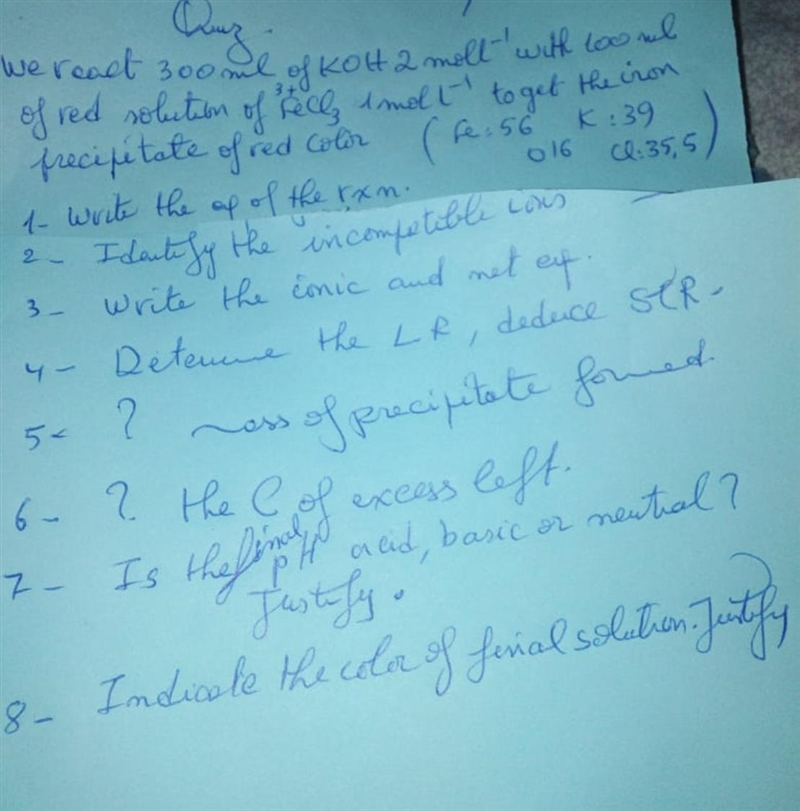 Quiz.
We react 300 ml of KOH 2 mol l⁻¹ with 100 ml
of red solution of FeCl₃ 1 mol l⁻¹ to get the iron
3+
precipitate of red color ( Fe : 56 K : 39
O 16 Cl : 35,5 )
1- Write the eq of the rxn.
2- Identify the incompetible ions
3- Write the ionic and net eq.
4- Determine the LR, deduce SCR.
5- ? mass of precipitate formed.
6- ? the C of excess left.
7- Is the final pH acid, basic or neutral?
Justify.
8- Indicate the color of final solution. Justify